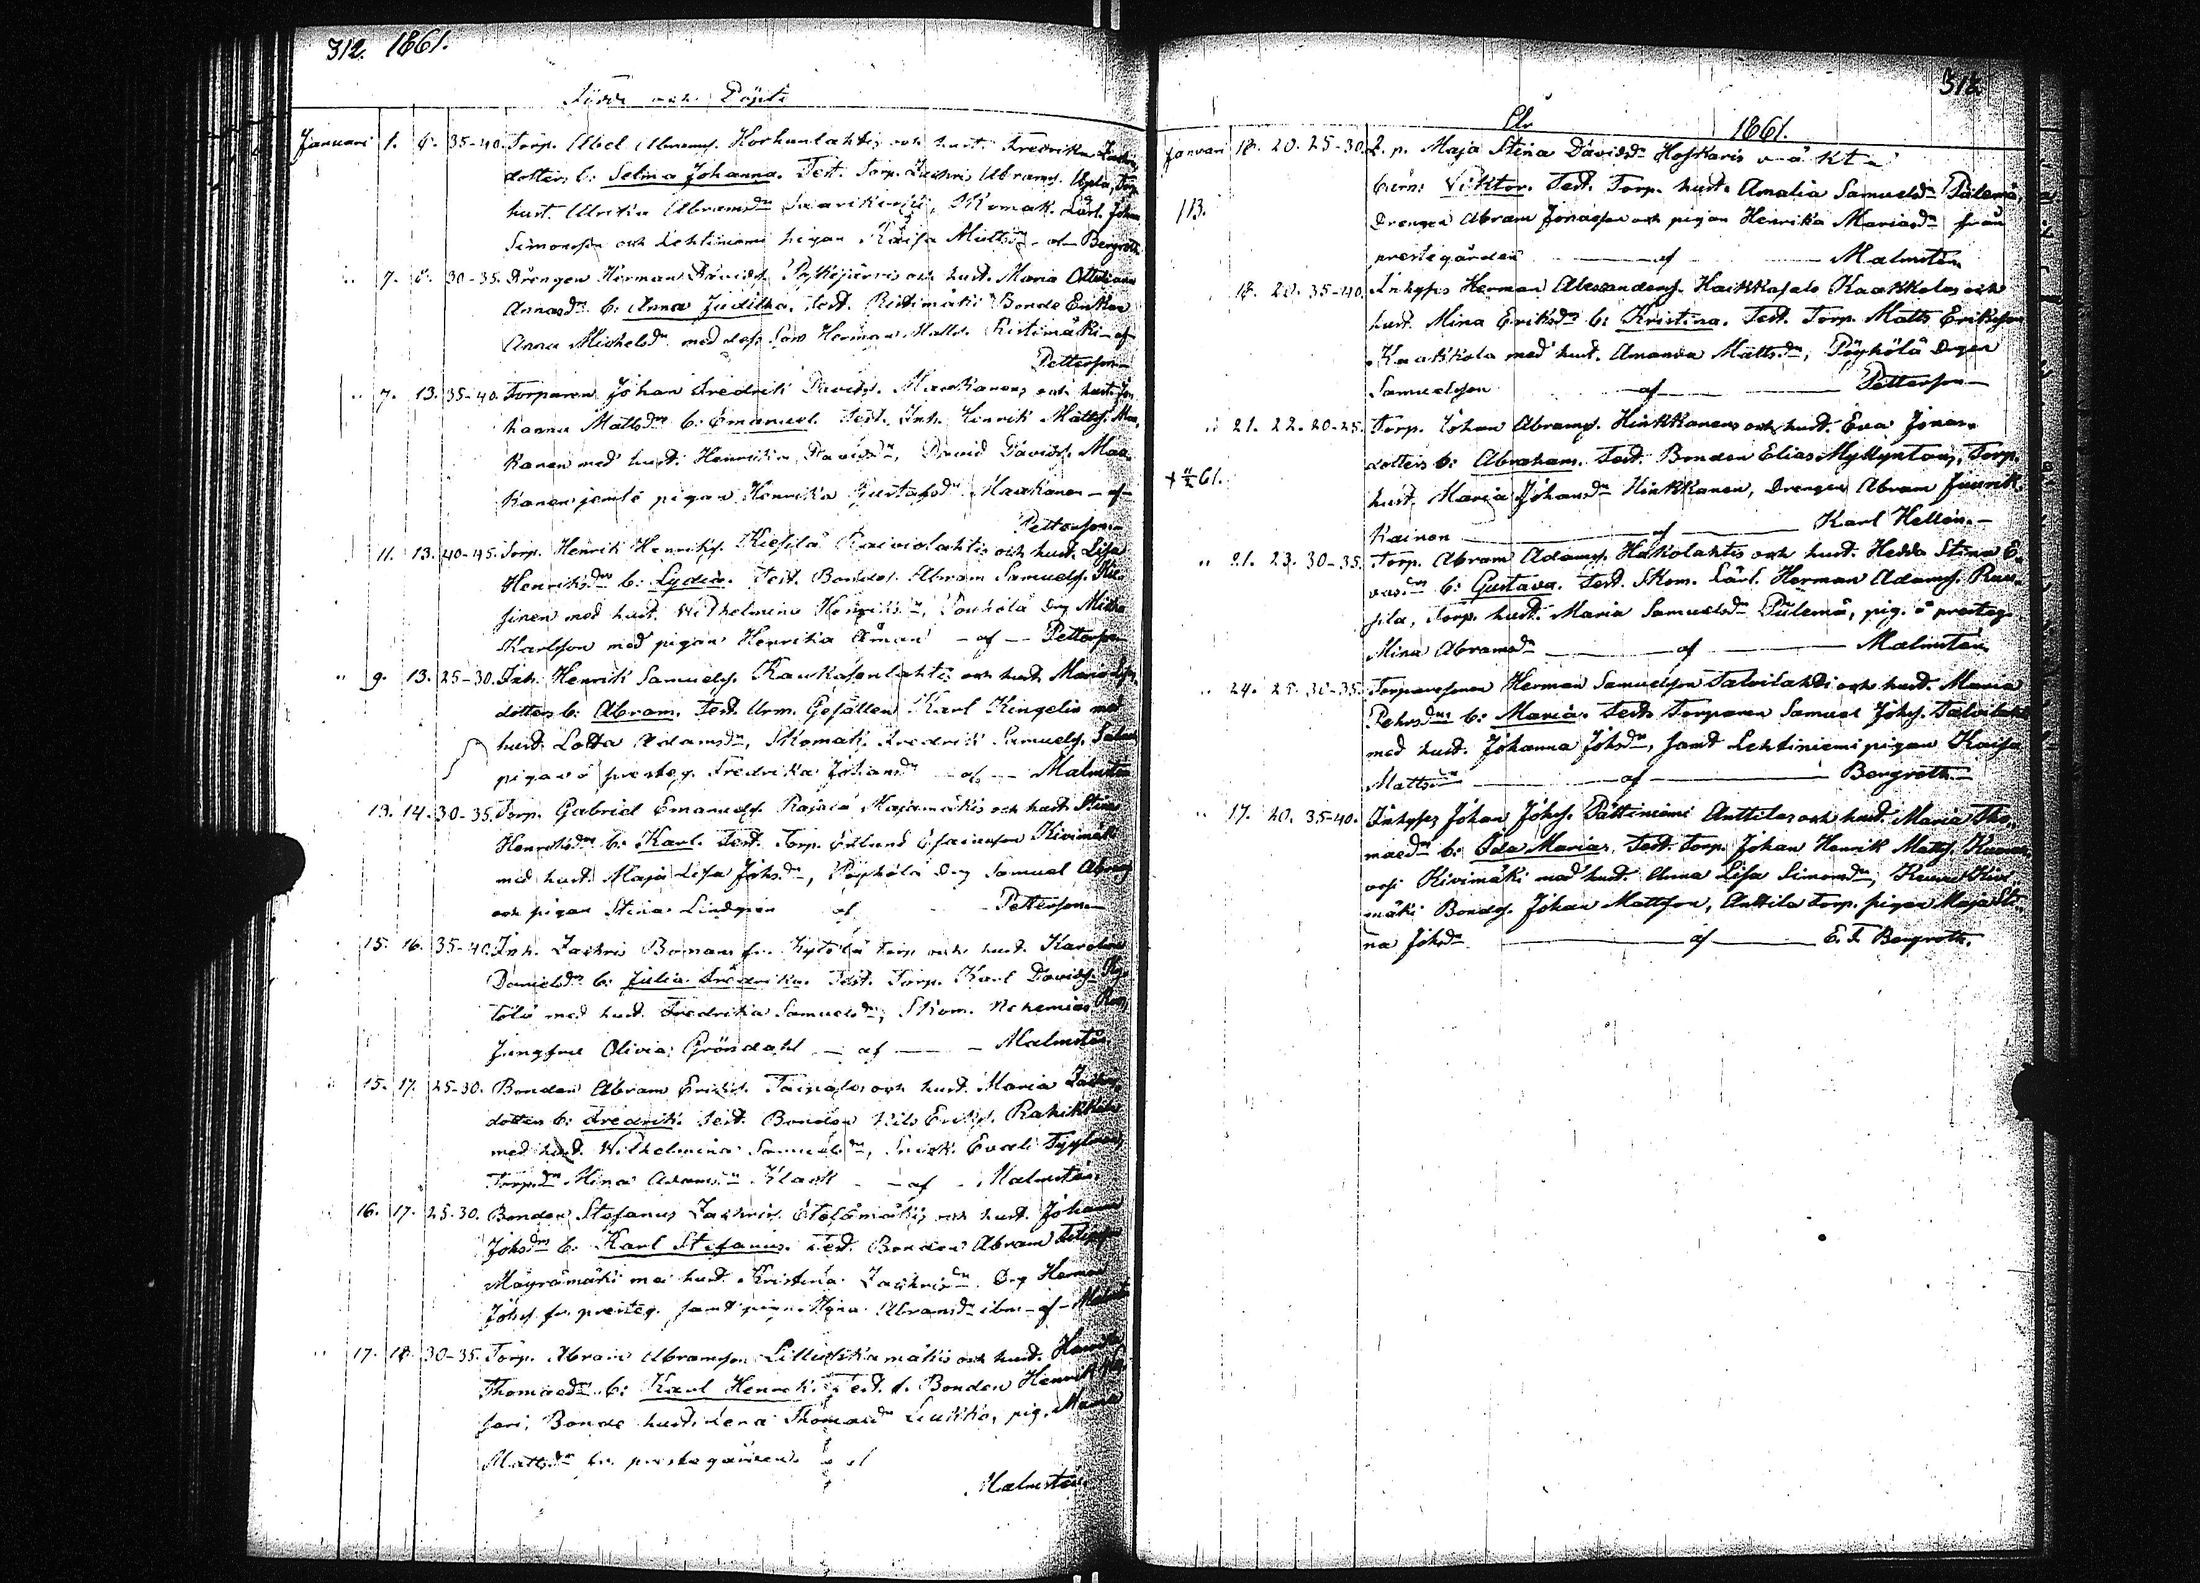 312. 1861.
Födde och Döpte
Januari 1. 6. 35-40. Torp. Abel Abrams. Korhunlahtis och hust. Fredrika Zachris
dotters b: Selma Johanna. Test. Torp. Zachris Abrams. Torp.
hust. Ulrika Abramsdr Skomak. Lärl. Johan
Simonsson och Lehtiniemi pigan Kaisa Mattsdr - af Bergroth
" 7. 6. 30-35. Drengen Herman Davids. och hust. Maria Ottiliana
Annasdrs b: Anna Juditha. Test. Ristimäki Bonde Enkan
Anna Michelsdr med dess Son Herman Matts. Ristimäki - af -
Petterson
" 7. 13. 35-40. Torparen Johan Fredrik Davids. Maukanens och hust. Jo-
hanna Mattsdrs b: Emanuel. Test. Inh. Henrik Matts. Mau-
kanen med hust. Henrika Davidsdr, David Davids. Mau-
kanen jemte pigan Henrika Gustafsdr Maukanen - af -
Petterson
" 11. 13. 40-45. Torp. Henrik Henriks. Kiesilä Raiviolahtis och hust. Lisa
Henriksdrs b: Lydia. Test. Bondes. Abram Samuels. Kie-
sinen med hust. Wilhelmina Henriksdr, Pouhola Drg Micka
Karlsson med pigan Henrika Åman - af - Petterson
" 9. 13. 25-30. Inh. Henrik Samuels. Kaukasenlahtis och hust. Maria
dotters b: Abram. Test. Urm. Gesällen Karl Kingelin med
hust. Lotta Adamsdr, Skomak. Fredrik Samuels.
pigan i presteg. Fredrika Johansdr - af - Malmsten
13. 14. 30-35. Torp. Gabriel Emanuels. Rajala Majamäkis och hust. Stina
Henriksdrs b: Karl. Test. Torp. Erland Esaiasson Kivimäki
med hust. Maja Lisa Johsdr, Pöyhölä Drg Samuel Abrams
och pigan Stina Lindgren af Petterson
15. 16. 35-40. Inh. Zachris Bomans fr. Kytölä torp och hust. Karolina
Danielsdrs b: Julia Fredrika. Test. Torp. Karl Davids. Ky-
tölä med hust. Fredrika Samuelsdr, Skom. Nehemias
Jungfrue Olivia Gröndahl - af - Malmsten
" 15. 17. 25-30. Bonden Abram Eriks. Tainalas och hust. Maria Zachris
dotters b: Fredrik. Test. Bonden Nils Eriks. Rahikkala
med hust. Wilhelmina Samuelsdr, Snick. Evald
Torp.dr Mina Adamsdr Klack - af - Malmsten
" 16. 17. 25-30. Bonden Stefanus Zachris. Etesämäkis och hust. Johanna
Johsdrs b: Karl Stefanus. Test. Bonden Abram
Mäyrämäki med hust. Kristina Zachrisdr Drg Herman
Johs. fr. presteg. samt pigan Mina Abramsdr ibm - af - Malmsten
" 17. 18. 30-35. Torp. Abram Abramsson och hust. Henrika
Thomasdrs b: Karl Henrik. Test. f. Bonden Henrik
sari, Bonde hust. Lena Thomasdr Luukko, pig. Maria
Mattsdr fr. prestegården af
Malmsten
312
År 1861.
Januari 18. 20. 25-30. L. p. Maja Stina Davidsdr Hoskaris o-äkta
barn: Viktor. Test. Torp. hust. Amalia Samuelsdr Pälemä,
113. Drengen Abram Jonasson och pigan Henrika Mariasdr från
prestegården af Malmsten
18. 20. 35-40. Inhyses Herman Alexanders. Haikkasalo Kaakkolas och
hust. Mina Eriksdrs b: Kristina. Test. Torp. Matts Eriksson
Kaakkola med hust. Amanda Mattsdr, Pöyhölä Dr:gen
Samuelsson af Petterson
" 21. 22. 20-25. Torp. Johan Abrams. Hinkkanens och hust. Eva Jonas-
dotters b: Abraham. Test. Bonden Elias Myllyntaus, Torp.
+ 61. hust. Maria Johansdr Hinkkanen, Drengen Abram Juurik-
kainen af Karl Hellén.
" 21. 23. 30-35. Torp. Abram Adams. Hakolahtis och hust. Hedda Stina E-
vasdrs b: Gustava. Test. Skom. Lärl. Herman Adams. Rau-
sila, Torp. hust. Maria Samuelsdr Pälemä, pig. i presteg.
Mina Abramsdr af Malmsten
" 24. 25. 30-35. Torparesonen Herman Samuelsson Talvilahti och hust. Maria
Pehrsdrs b: Maria. Test. Torparen Samuel Johs. Talvilahti
med hust. Johanna Johsdr, samt Lehtiniemi pigan Kaisa
Mattsdr af Bergroth
" 17. 20. 35-40. Inhyses Johan Johs. Pättiniemi Anttilas och hust. Maria Tho-
masdrs b: Ida Maria. Test. Torp. Johan Henrik Matts.
Kivimäki med hust. Anna Lisa Simonsdr, Kivi-
mäki Bondes. Johan Mattsson, Anttila torp. pigan Maja Sti-
na Johsdr af E. F. Bergroth.